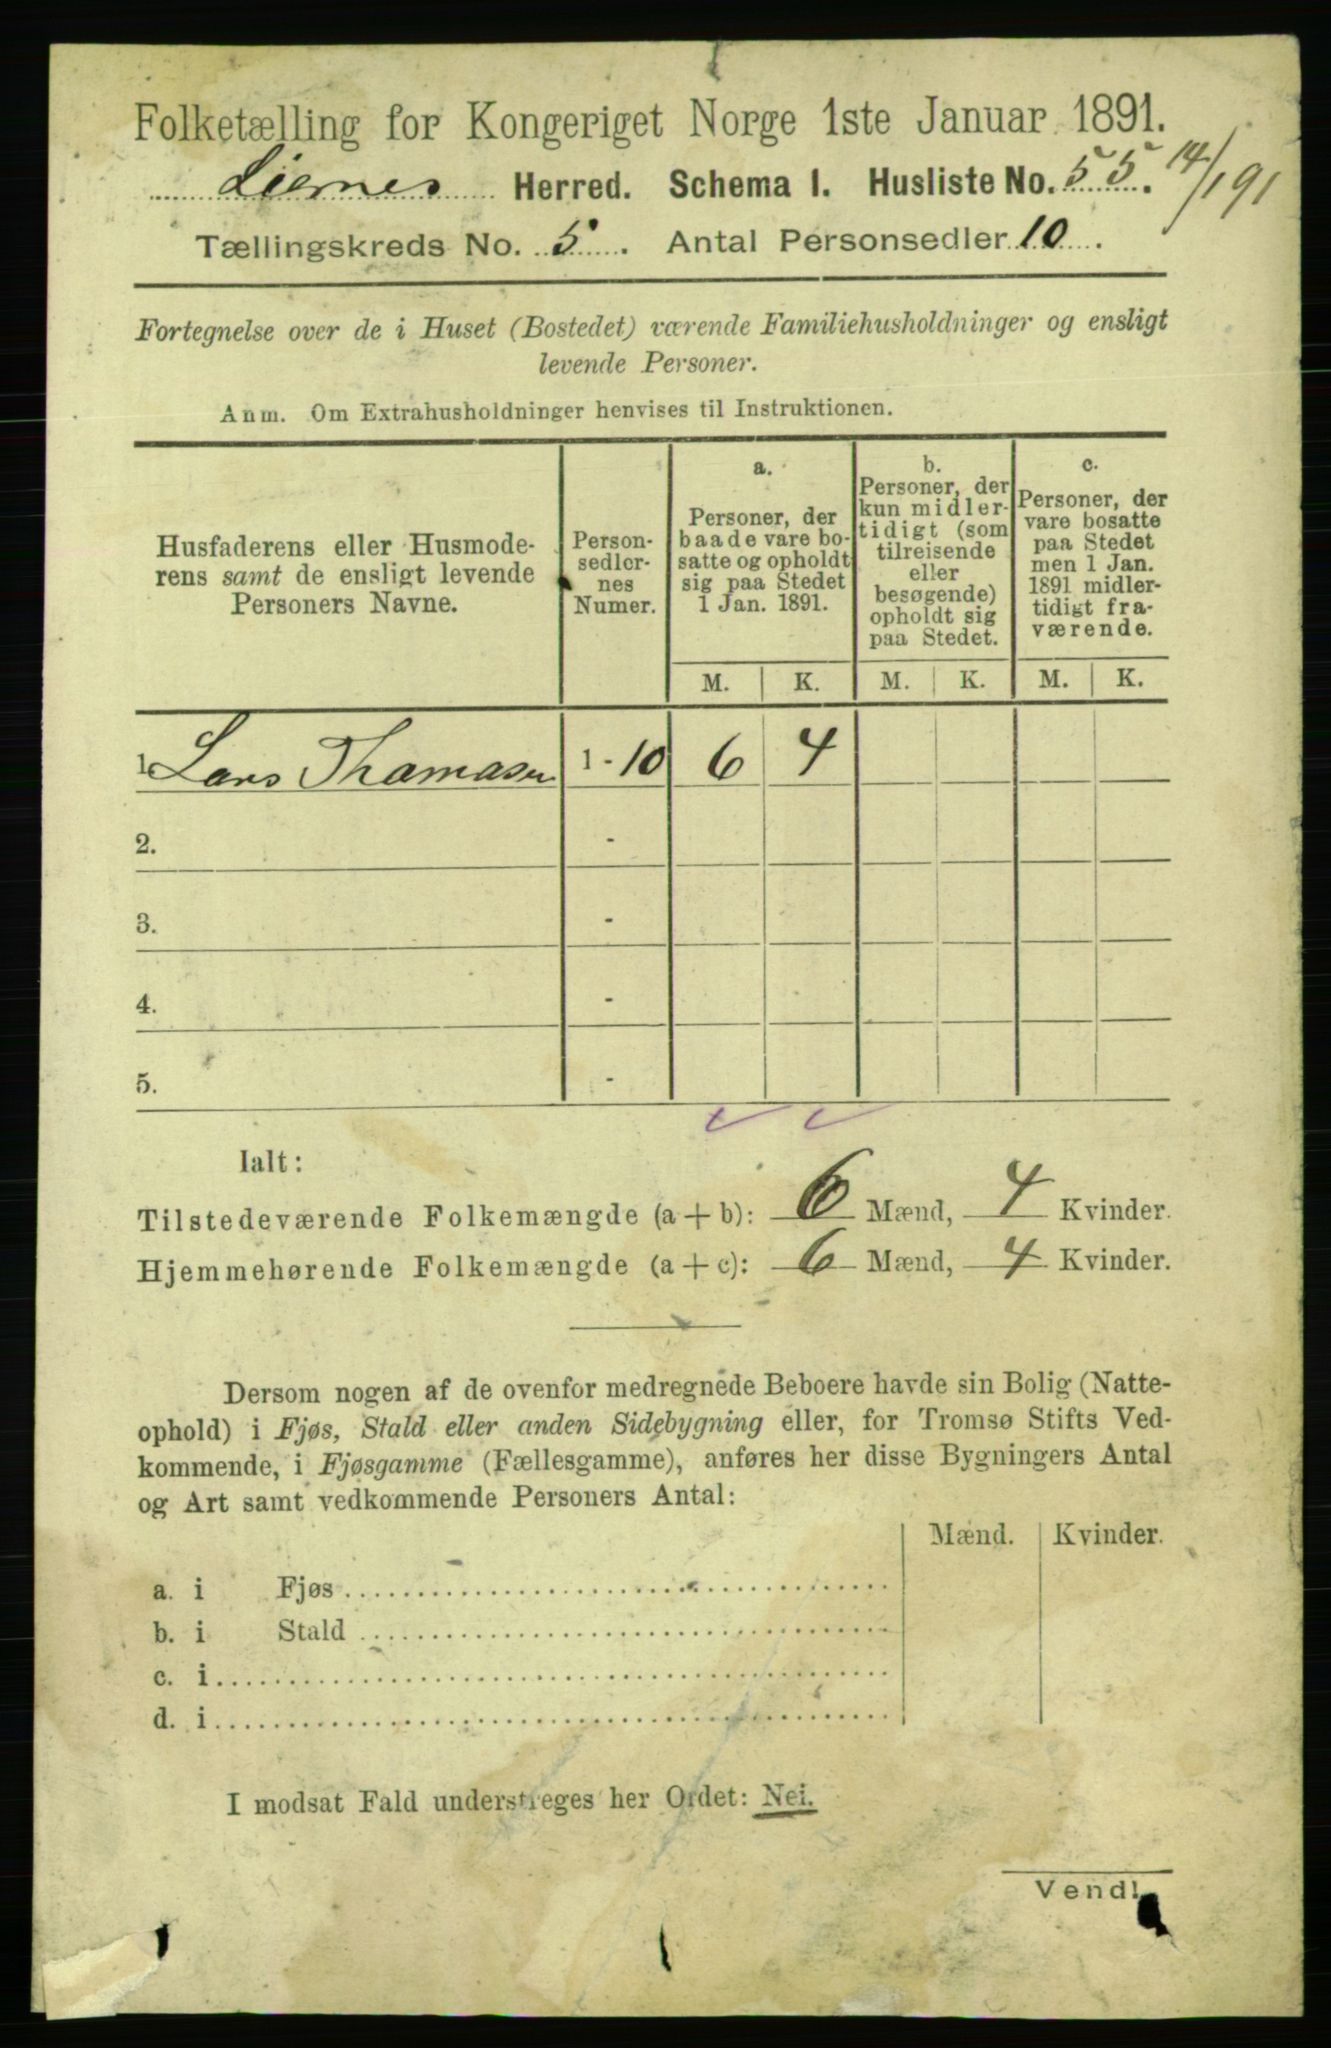 Folketælling for Kongeriget Norge 1ste Januar 1891.
Liernes Herred. Schema 1. Husliste No. 55. 14/1 91
Tællingskreds No. 5. Antal Personsedler 10.
Fortegnelse over de i Huset (Bostedet) værende Familiehusholdninger og ensligt
levende Personer.
Anm. Om Extrahusholdninger henvises til Instruktionen.
Husfaderens eller Husmode-
rens samt de ensligt levende
Personers Navne.
Person-
sedler-
nes
Numer.
a.
Personer, der
baade vare bo-
satte og opholdt
sig paa Stedet
1 Jan. 1891.
b.
Personer, der
kun midler-
tidigt (som
tilreisende
eller
besøgende)
opholdt sig
paa Stedet.
c.
Personer, der
vare bosatte
paa Stedet
men 1 Jan.
1891 midler-
tidigt fra-
værende.
M. K. M. K. M. K.
1. Lars Thamasen 1 - 10 6 4
2. -
3. -
4. -
5. -
Ialt:
Tilstedeværende Folkemængde (a + b): 6 Mænd, 4 Kvinder.
Hjemmehørende Folkemængde (a + c): 6 Mænd, 4 Kvinder.
Dersom nogen af de ovenfor medregnede Beboere havde sin Bolig (Natte-
ophold) i Fjøs, Stald eller anden Sidebygning eller, for Tromsø Stifts Ved-
kommende, i Fjøsgamme (Fællesgamme), anføres her disse Bygningers Antal
og Art samt vedkommende Personers Antal:
Mænd. Kvinder.
a. i Fjøs
b. i Stald
c. i
d. i
I modsat Fald understreges her Ordet: Nei.
Vend!